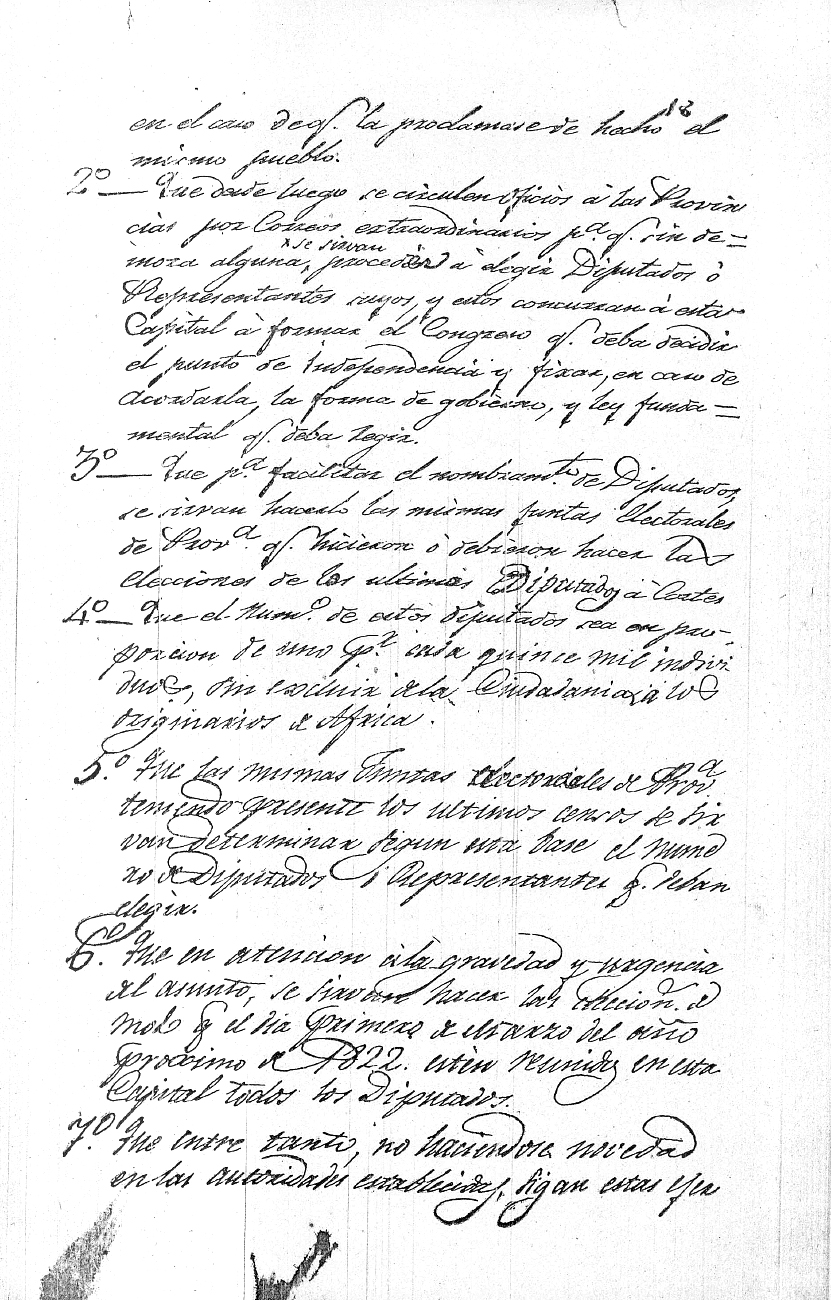 18
en el caso de q.ᵉ la proclamase de hecho el
mismo pueblo.
2º — Que desde luego se circulen oficios á las Provin
cias por Correos extraordinarios p.ª q.ᵉ sin de=
mora alguna, se sirvan proceder á elegir Diputados ó
Representantes suyos, y estos concurran á esta
Capital á formar el Congreso q.ᵉ deba decidir
el punto de Independencia y fixar, en caso de
acordarla, la forma de gobierno, y ley funda=
mental q.ᵉ deba regir.
3º — Que p.ª facilitar el nombram.ᵗᵒ de Diputados,
se sirvan hacerlo las mismas juntas Electorales
de Prov.ª q.ᵉ hicieron ó debieron hacer las
elecciones de los ultimos Diputados á Cortes
4º — Que el Num.º de estos diputados sea en pro-
porcion de uno p.ʳ cada quince mil indivi
duos, sin excluir de la Ciudadania á los
originarios de Africa.
5.º Que las mismas Juntas electorales de Prov.ª
teniendo presente los ultimos censos se sir
van determinar segun esta base el nume
ro de Diputados ó Representantes q.ᵉ deban
elegir.
6.º Que en atencion á la gravedad y urgencia
del asunto, se sirvan hacer las eleccion.ˢ de
modo q.ᵉ el dia primero de Marzo del año
proximo de 1822. esten reunidos en esta
Capital todos los Diputados.
7.º Que entre tanto, no haciendose novedad
en las autoridades establecidas, sigan estas ejer